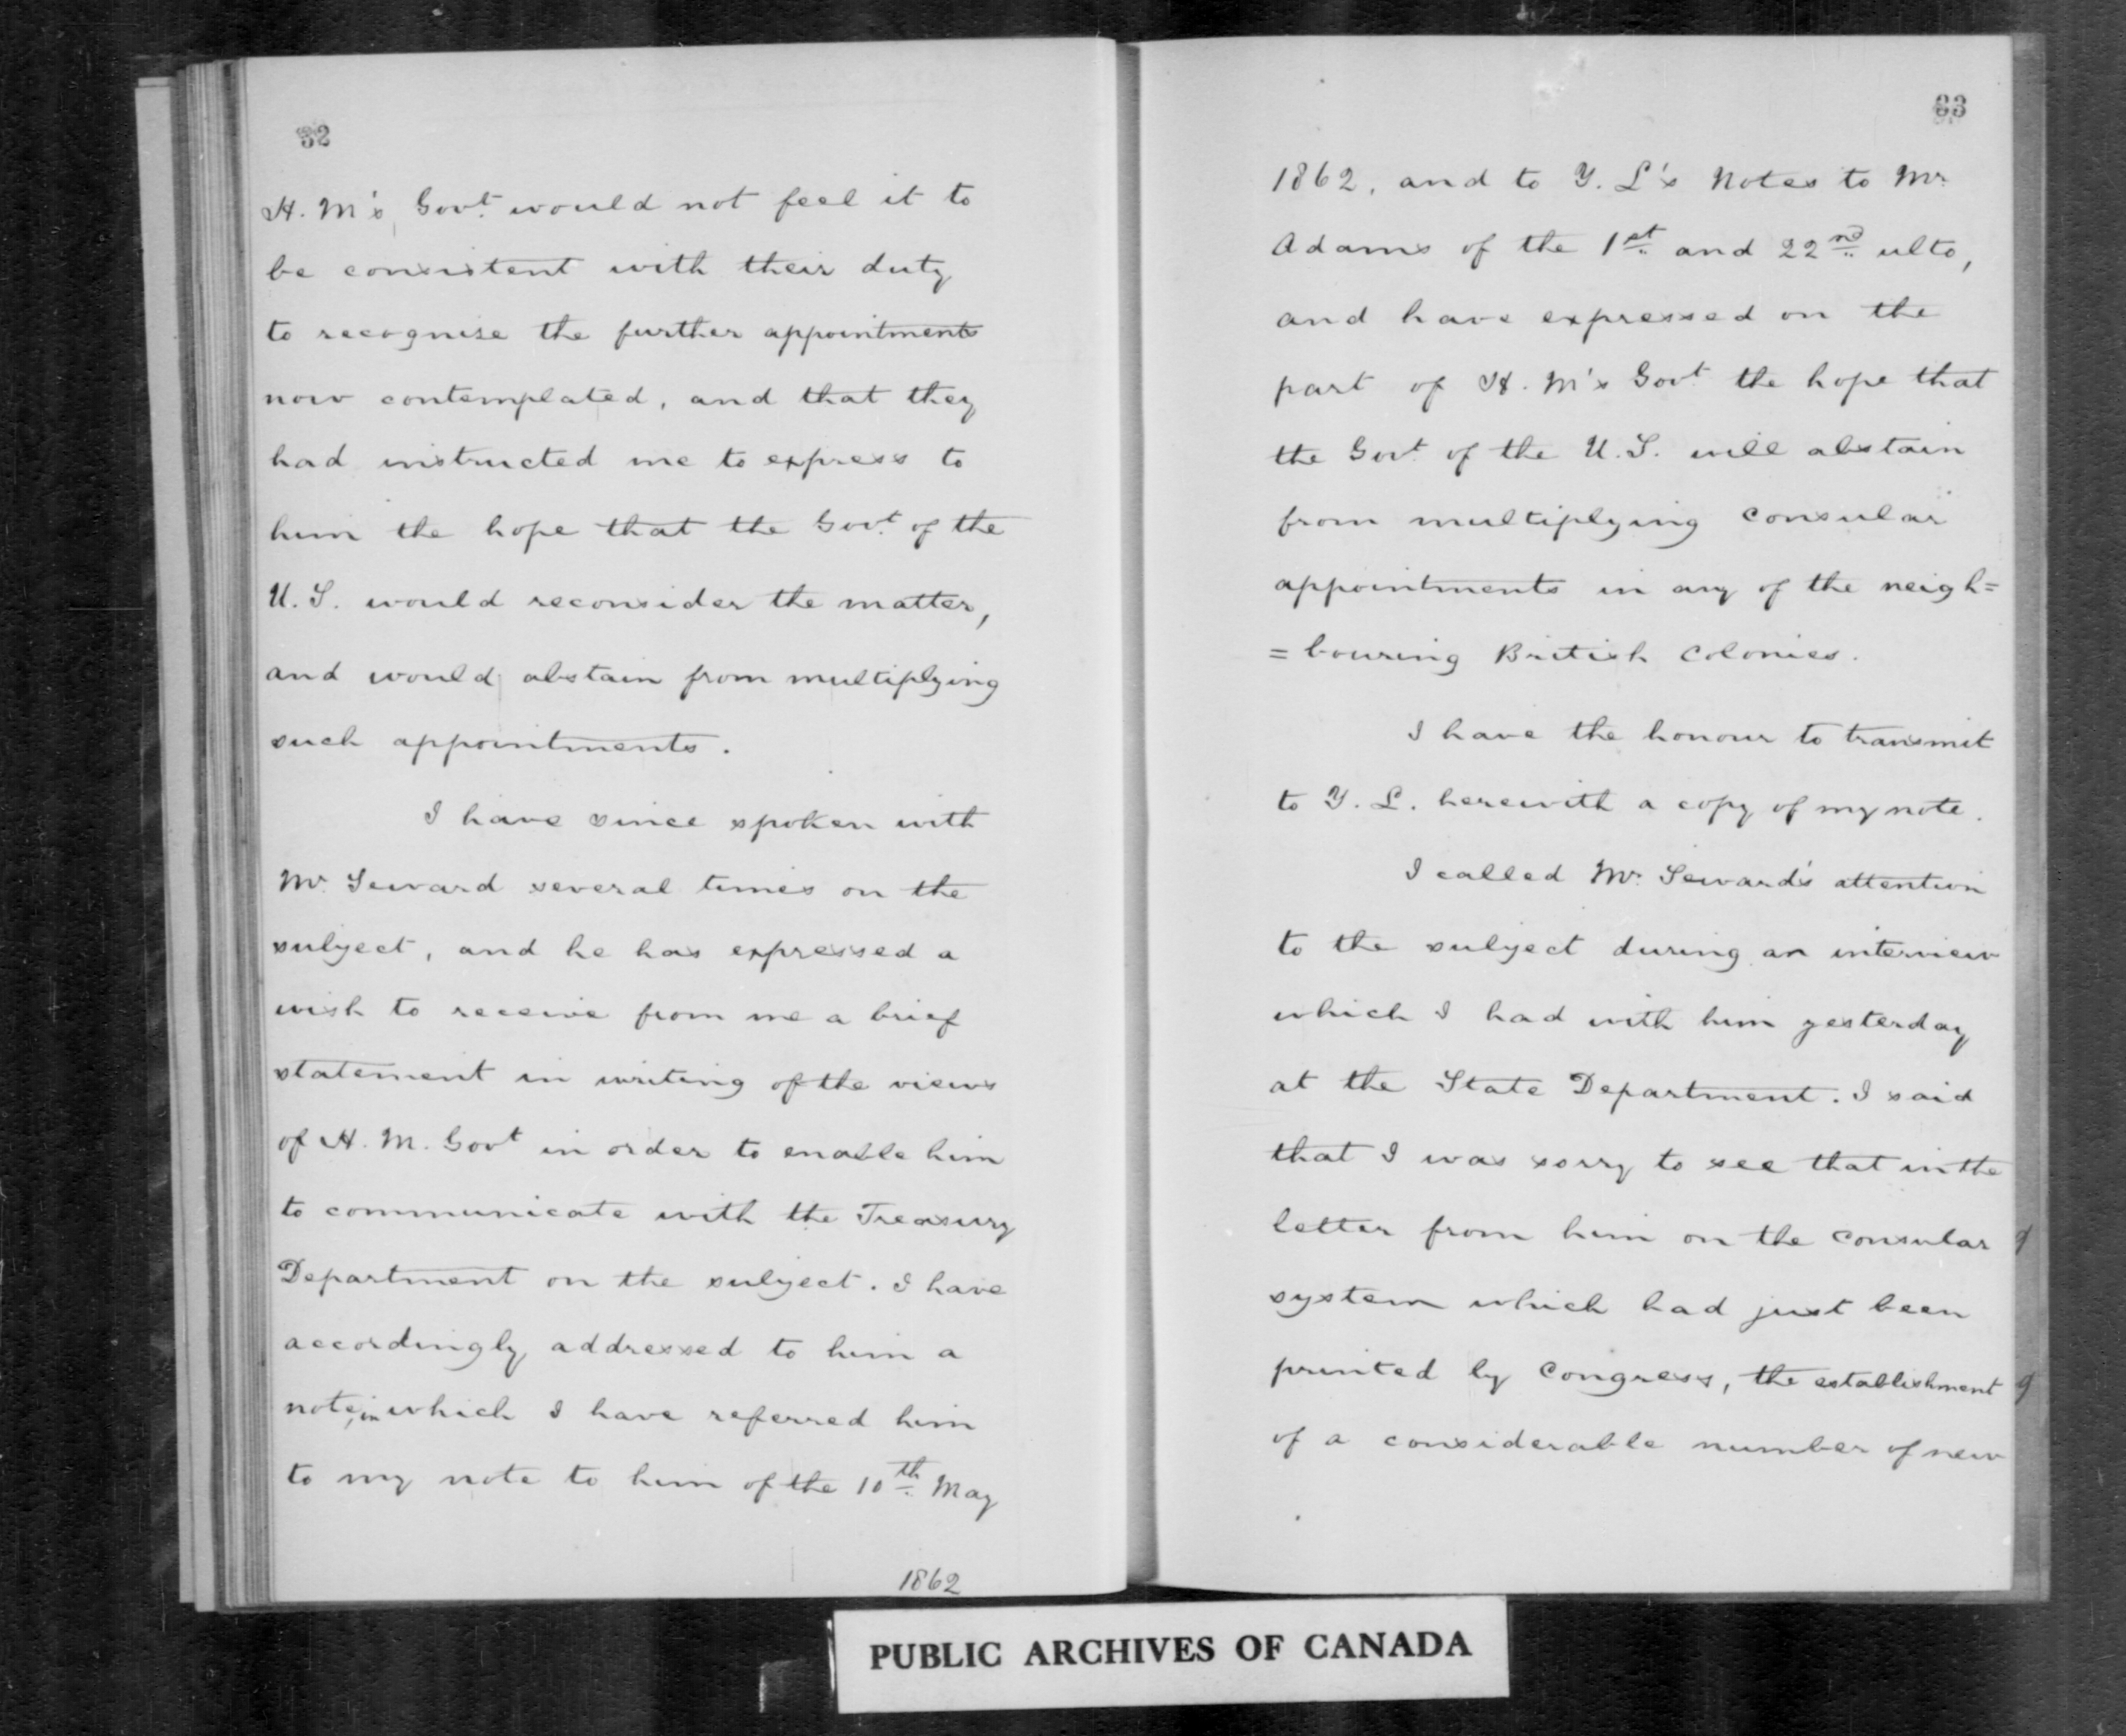 32
H. M's Govt. would not feel it to
be consistent with their duty
to recognise the further appointments
now contemplated, and that they
had instructed me to express to
him the hope that the Govt. of the
U. S. would reconsider the matter,
and would abstain from multiplying
such appointments.
I have since spoken with
Mr. Seward several times on the
subject, and he has expressed a
wish to receive from me a brief
statement in writing of the views
of H. M. Govt in order to enable him
to communicate with the Treasury
Department on the subject. I have
accordingly addressed to him a
note, in which I have referred him
to my note to him of the 10th. May
1862
33
1862, and to Y. L's Notes to Mr.
Adams of the 1st. and 22nd. ulto,
and have expressed on the
part of H. M's Govt. the hope that
the Govt. of the U. S. will abstain
from multiplying Consular
appointments in any of the neigh=
=bouring British Colonies.
I have the honour to transmit
to Y. L. herewith a copy of my note.
I called Mr. Seward's attention
to the subject during an interview
which I had with him yesterday
at the State Department. I said
that I was sorry to see that in the
letter from him on the Consular
system which had just been
printed by Congress, the establishment
of a considerable number of new
PUBLIC ARCHIVES OF CANADA